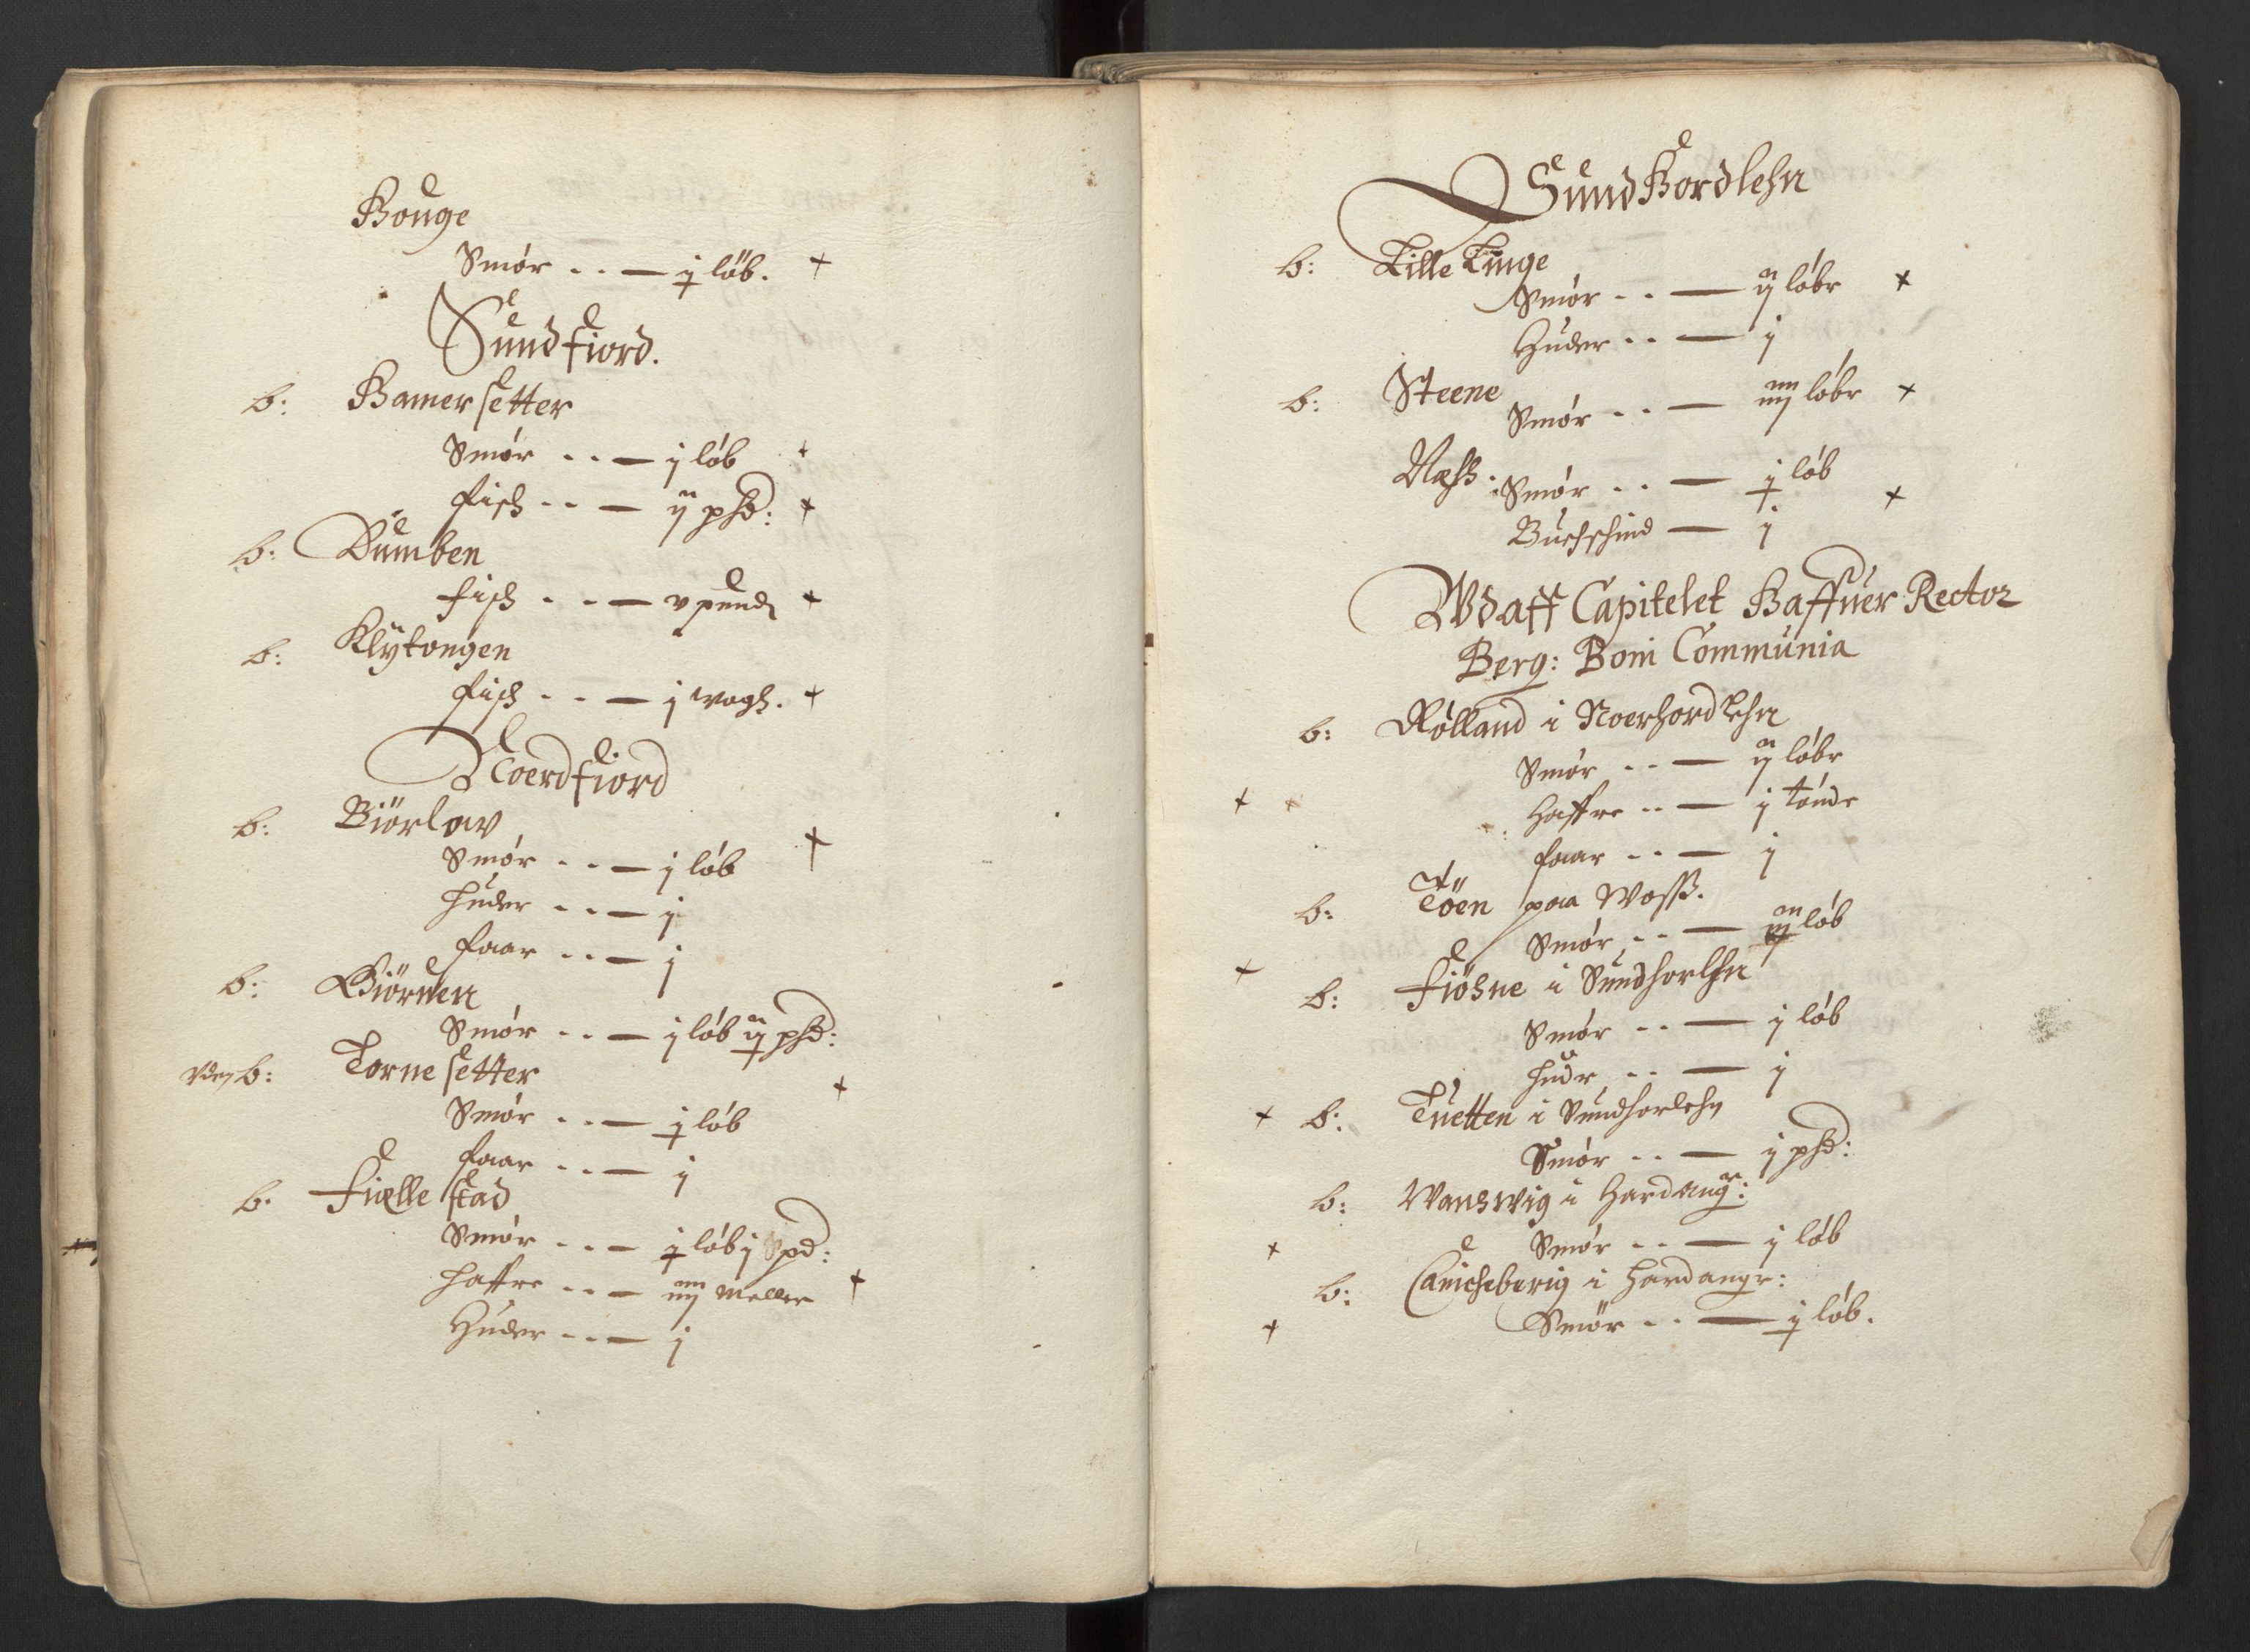 Houge
Smör - - — j löb. +
Sundfiord.
b: Hamersetter
Smör - - — j löb +
fisch - - — ij phd: +
b: Dumben
fisch - - — v pund +
b: Klÿtongen
fisch - - — j wogh. +
Noerdfiord
b: Biörlow
Smör - - — j löb +
huder - - — j
faar - - — j
b: Giörnen
Smör - - — j löb ij phd:
b: Tornesetter
Smör - - — j löb +
faar - - — j
b. Fiællestad
Smör - - — j löb j Spd:
haffre - - — iiij meller +
Huder - - — j
SundHordlehn
b: Lille Linge
Smör - - — ij löbr +
Huder - - — j
b: Steene
Smör - - — iiij löbr +
Næss: Smör - - — j löb
Buchschind — j +
Wdaff Capitelet Haffuer Rector
Berg: Boni Communia
b: Rölland i Noerhordlehn
Smör - - — ij löbr
+ Haffre - - — j tönde
faar - - — j
b: Töen paa Woss.
Smör - - — löb
+ b: Fiösne i Sundhorlehn
Smör - - — j löb
hudr - - — j
+ b: Tuetten i Sundhorlehn
Smör - - — j phd:
b: Wanswig i Hardangr:
+ Smör - - — j löb
b: i Hardangr:
+ Smör - - — j löb.